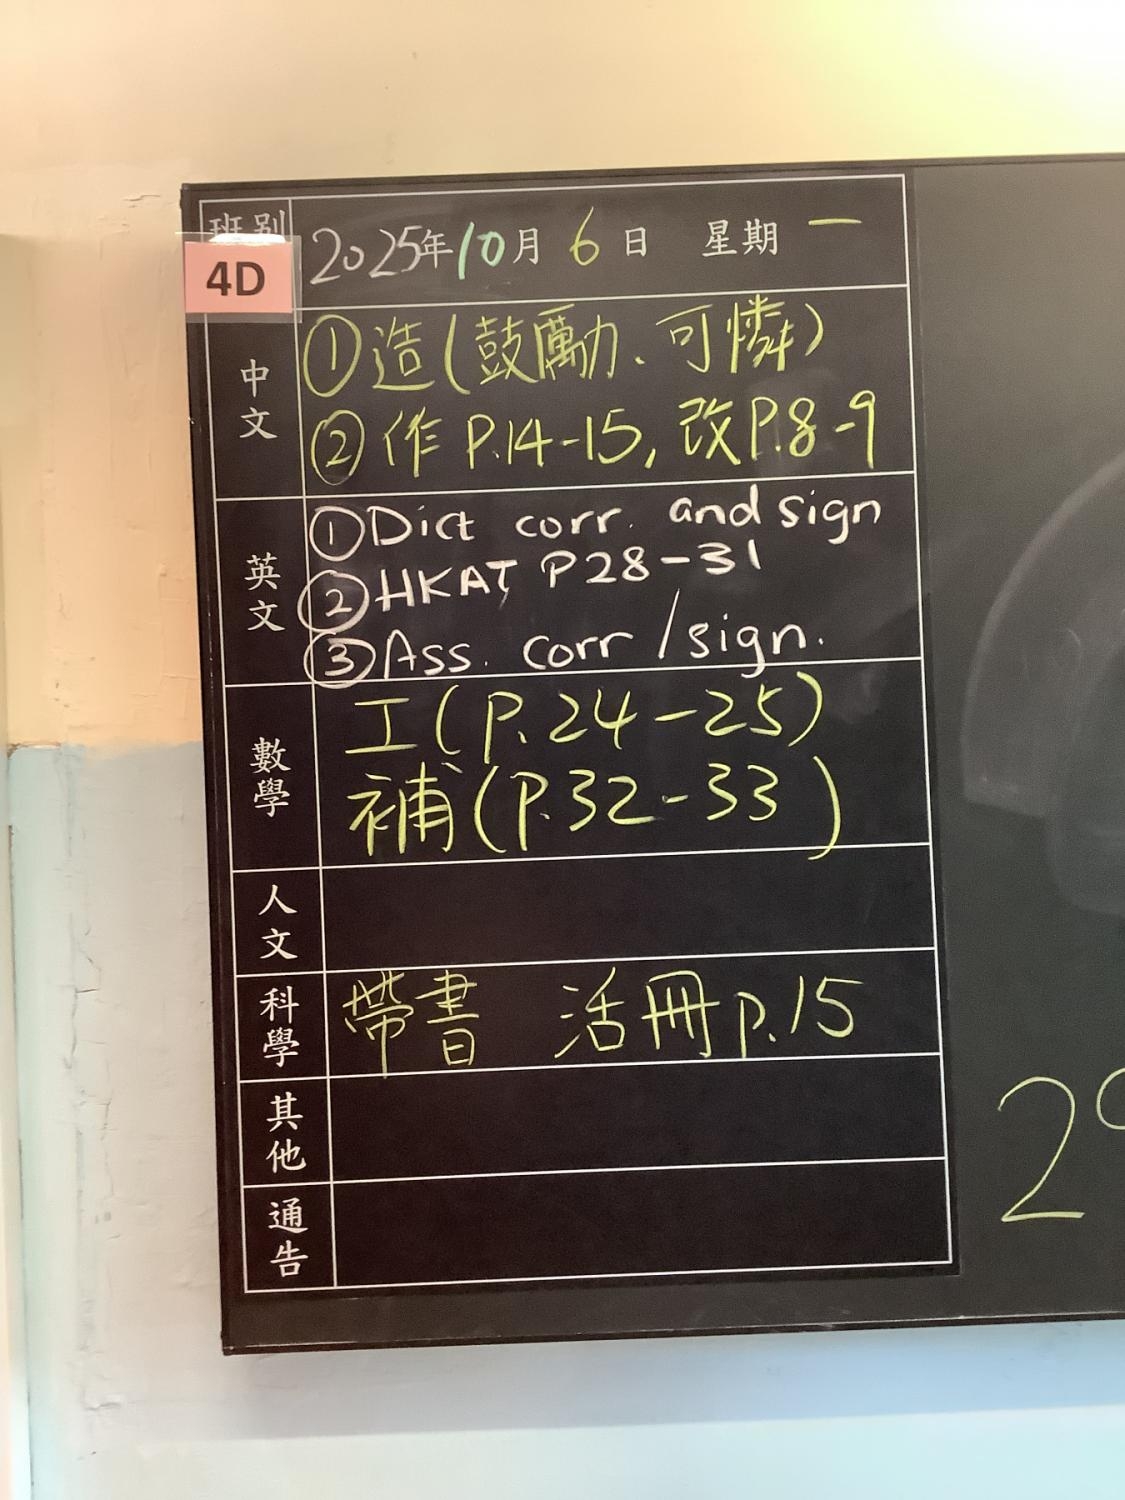 班別
4D
2025年10月6日 星期一
中文
①造(鼓勵、可憐)
②作P.14-15,改P.8-9
英文
①Dict corr. and sign
②HKAT P28-31
③Ass. corr/sign.
數學
工(P.24-25)
補(P.32-33)
人文
科學
帶書 活冊p.15
其他
通告
2